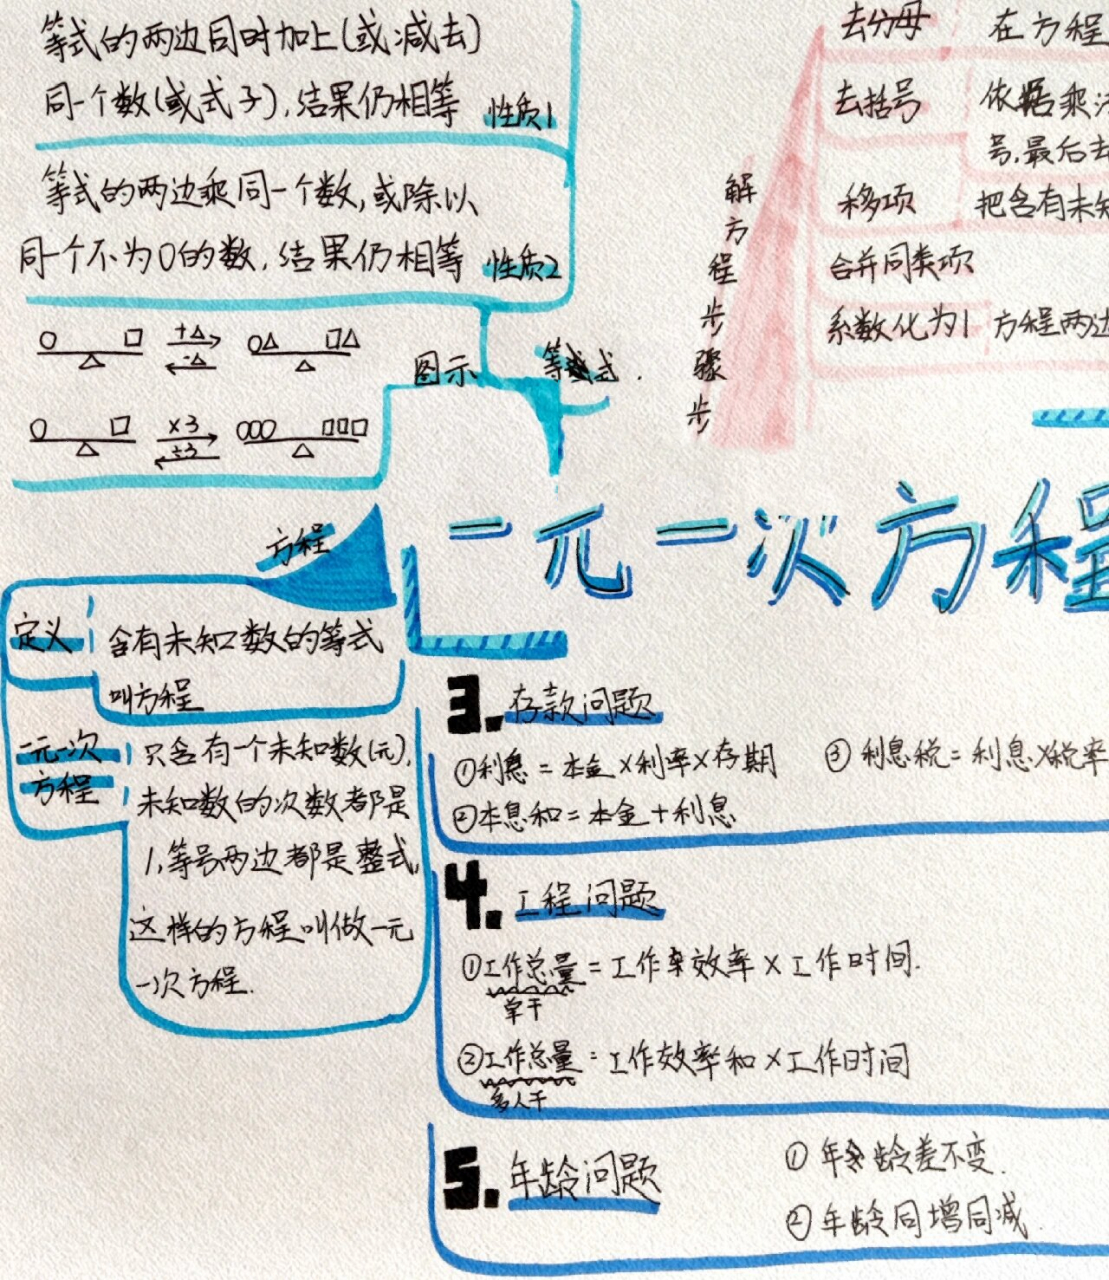 等式的两边同时加上(或减去)
同一个数(或式子),结果仍相等 性质1
等式的两边乘同一个数,或除以
同一个不为0的数,结果仍相等 性质2
+△
-△
图示
等式
×3
÷3
解方程步骤步
去分母 在方程
去括号 依据乘
号,最后去
移项 把含有未知
合并同类项
系数化为1 方程两边
一元一次方程
方程
定义 含有未知数的等式
叫方程
一元一次
方程
只含有一个未知数(元),
未知数的次数都是
1,等号两边都是整式,
这样的方程叫做一元
一次方程.
3. 存款问题
①利息=本金×利率×存期 ③利息税=利息×税率
②本息和=本金+利息
4. 工程问题
①工作总量=工作效率×工作时间.
单干
②工作总量=工作效率和×工作时间
多人干
5. 年龄问题
①年龄差不变.
②年龄同增同减.